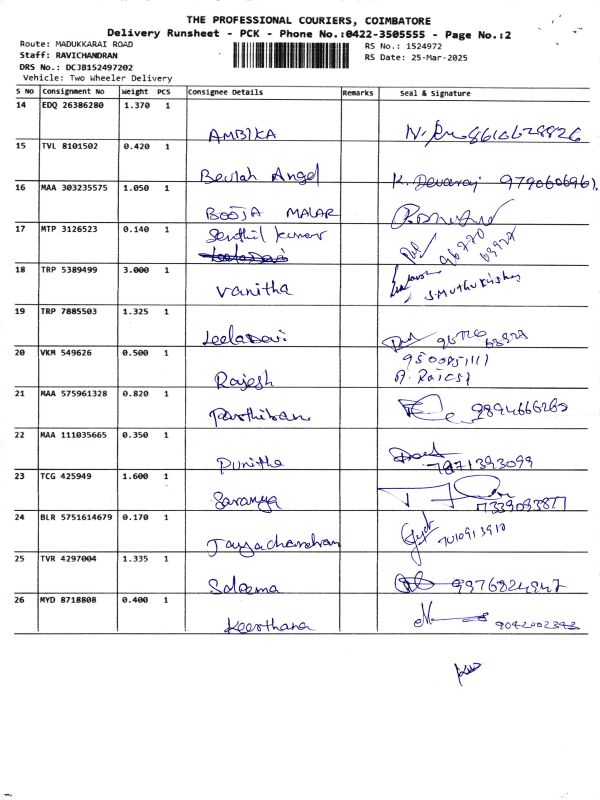 THE PROFESSIONAL COURIERS, COIMBATORE
Delivery Runsheet - PCK - Phone No.:0422-3505555 - Page No.:2
Route: MADUKKARAI ROAD
RS No.: 1524972
Staff: RAVICHANDRAN
RS Date: 25-Mar-2025
DRS No.: DCJB152497202
Vehicle: Two Wheeler Delivery
S NO Consignment No Weight PCS Consignee Details Remarks Seal & Signature
14 EDQ 26386280 1.370 1
AMBIKA
15 TVL 8101502 0.420 1
Beulah Angel K. Devaraj 9790606961
16 MAA 303235575 1.050 1
BOOJA MALAR
17 MTP 3126523 0.140 1
Senthil kumar
LeelaDevi
18 TRP 5389499 3.000 1
Vanitha S.Muthukrishnan
19 TRP 7885503 1.325 1
LeelaDevi
20 VKM 549626 0.500 1
Rajesh
21 MAA 575961328 0.820 1
Parthiban 9894666269
22 MAA 111035665 0.350 1
Punitha 7871393099
23 TCG 425949 1.600 1
Saranya 7339093877
24 BLR 5751614679 0.170 1
Jayachandran 7010913910
25 TVR 4297004 1.335 1
Saleema 9976824947
26 MYD 8718808 0.400 1
Keerthana 9042002343